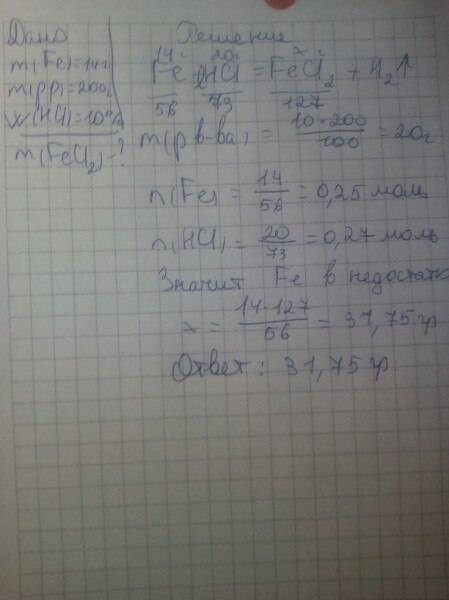 Дано
m(Fe)=14г
m(рр)=200г
W(HCl)=10%
m(FeCl2)-?
Решение
14г 20г x г
Fe + 2HCl = FeCl2 + H2↑
56 73 127
m(р в-ва) = 10·200/100 = 20г
n(Fe) = 14/56 = 0,25 моль
n(HCl) = 20/73 = 0,27 моль
Значит Fe в недостатк
x = 14·127/56 = 31,75 гр
Ответ: 31,75 гр